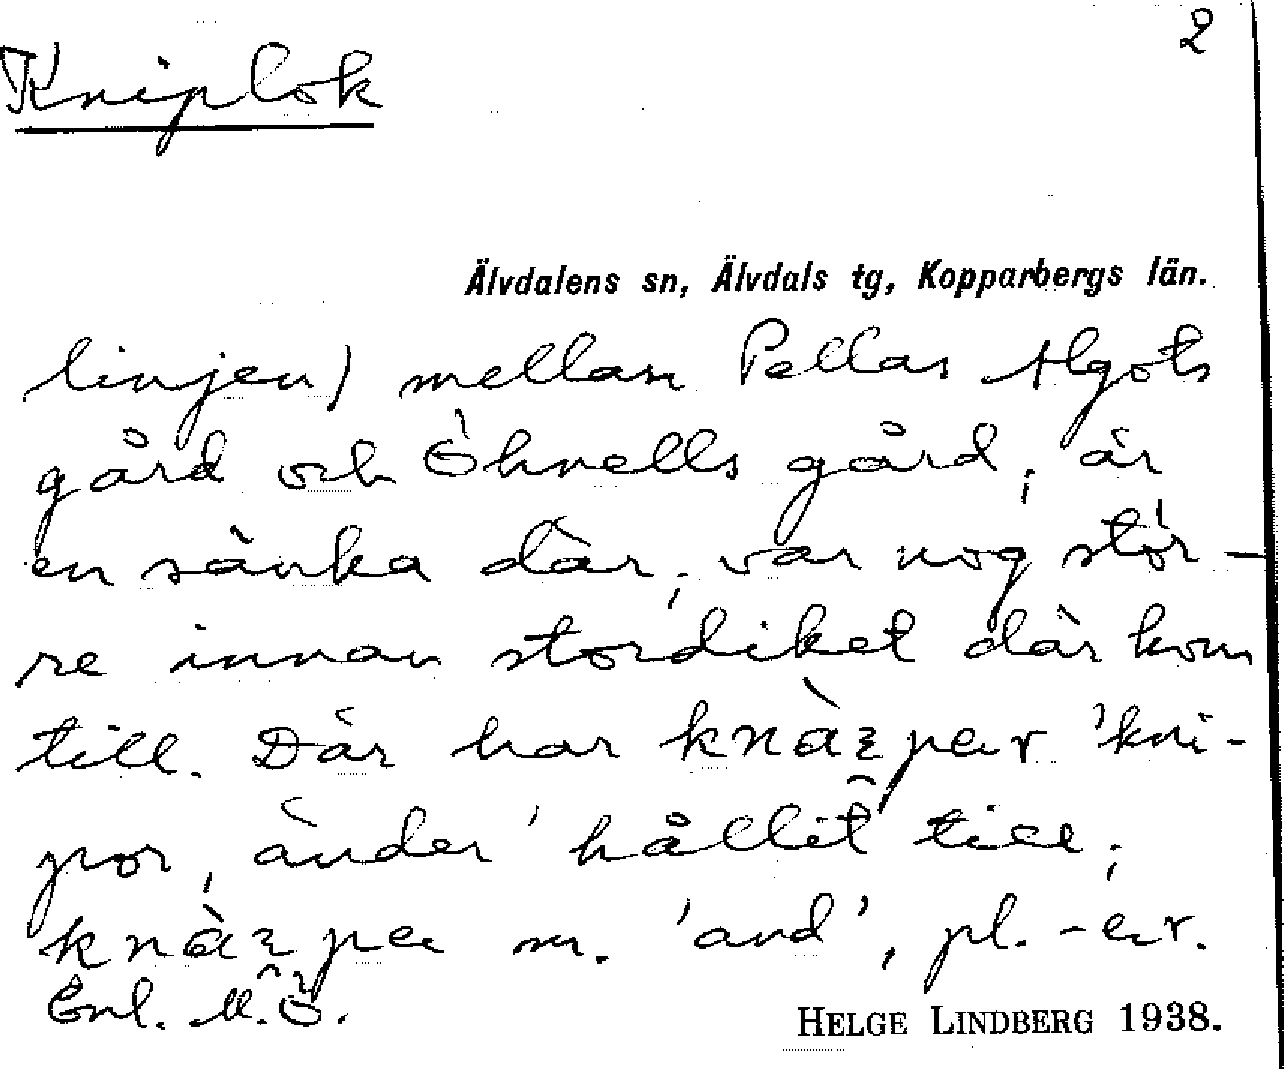 2
Kniplok
Älvdalens sn, Älvdals tg, Kopparbergs län.
linjen) mellan Pellas Algots
gård och Öhnells gård, är
en sänka där, var nog stör-
re innan stordiket där kom
till. Där har 'kni-
por, änder' hållit till;
m. 'and', pl.
Enl. M.Ö.
HELGE LINDBERG 1938.